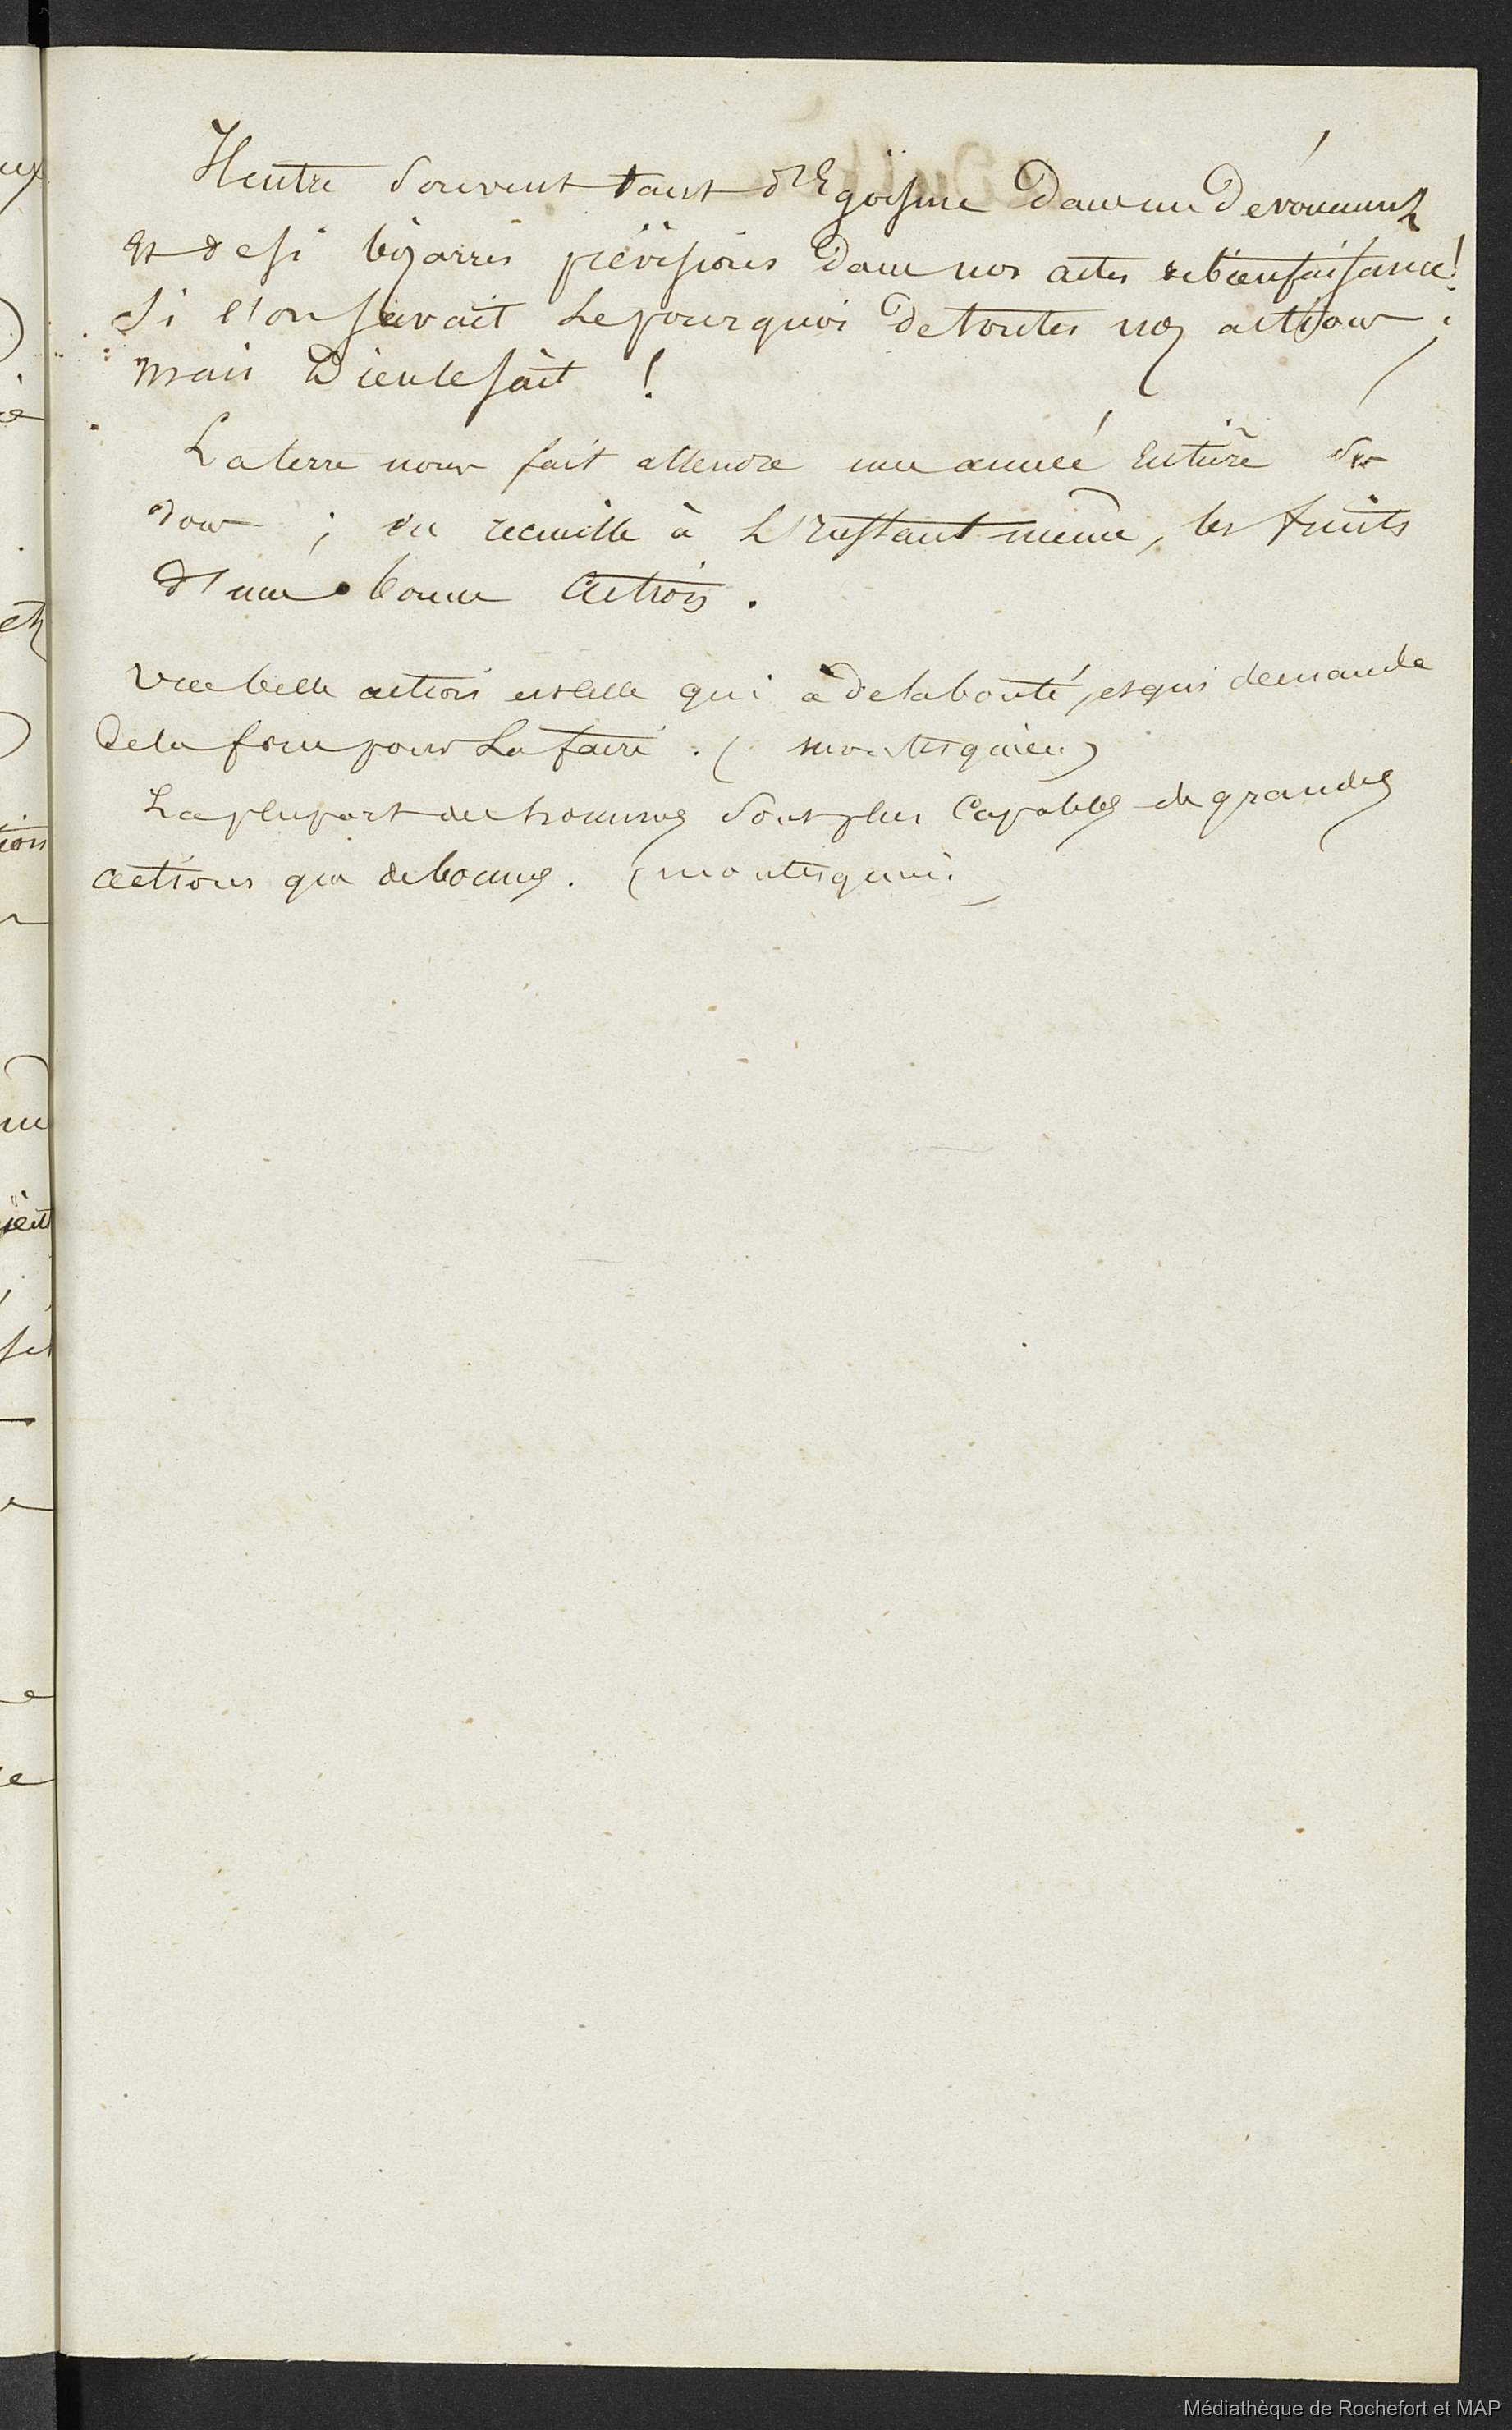 Il entre souvent tant d'Egoïsme dans un dévouement
et de si bizarres prévisions dans nos actes de bienfaisance!
Si l'on savait le pourquoi de toutes nos actions ;
mais Dieu le sait !
La terre nous fait attendre une année entière ses
dons ; on recueille à l'instant même, les fruits
d'une bonne action.
Une belle action est celle qui a de la bonté, et qui demande
de la force pour la faire. (montesquieu)
La plupart des hommes sont plus capables de grandes
actions que de bonnes. (montesquieu)
Médiathèque de Rochefort et MAP